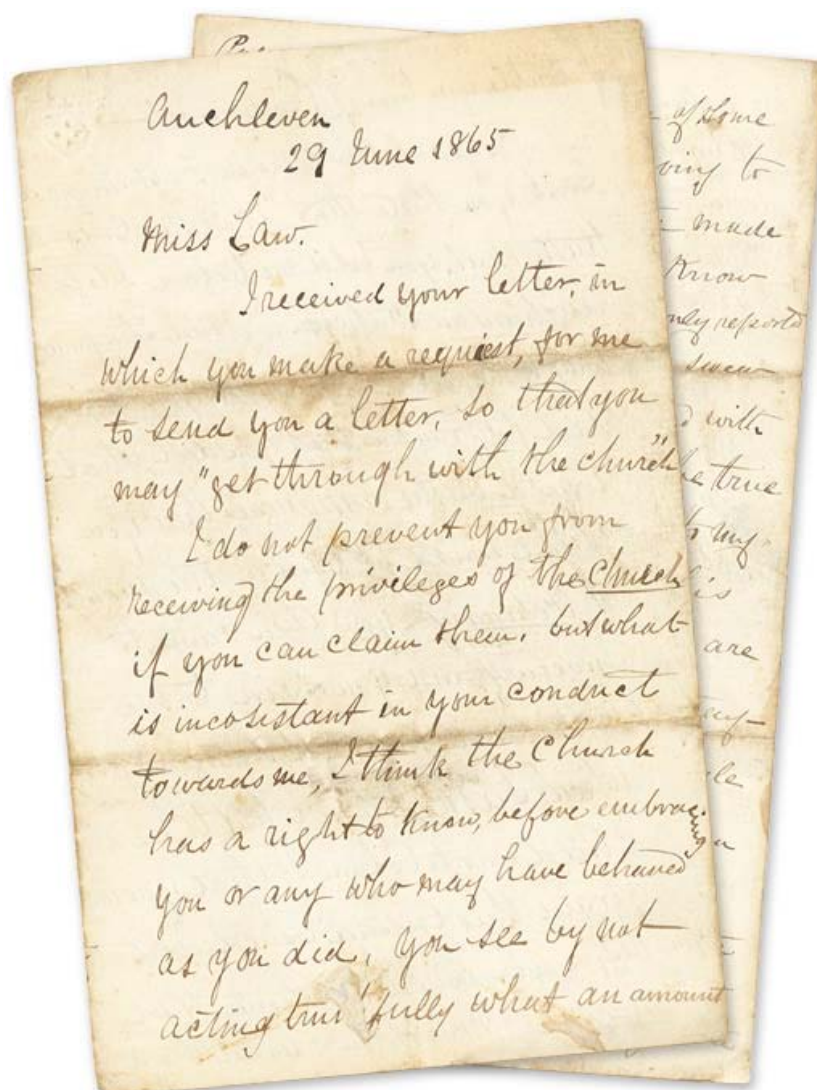 Auchleven
29 June 1865
Miss Law.
I received your letter, in
which you make a request, for me
to send you a letter, so that you
may "get through with the church"
I do not prevent you from
receiving the privileges of the Church
if you can claim them. but what
is incosistant in your conduct
towards me, I think the Church
has a right to know, before embracing
you or any who may have behaved
as you did, you see by not
acting truthfully what an amount
of some
to
made
Know
only reported
swear
with
true
to my
is
are